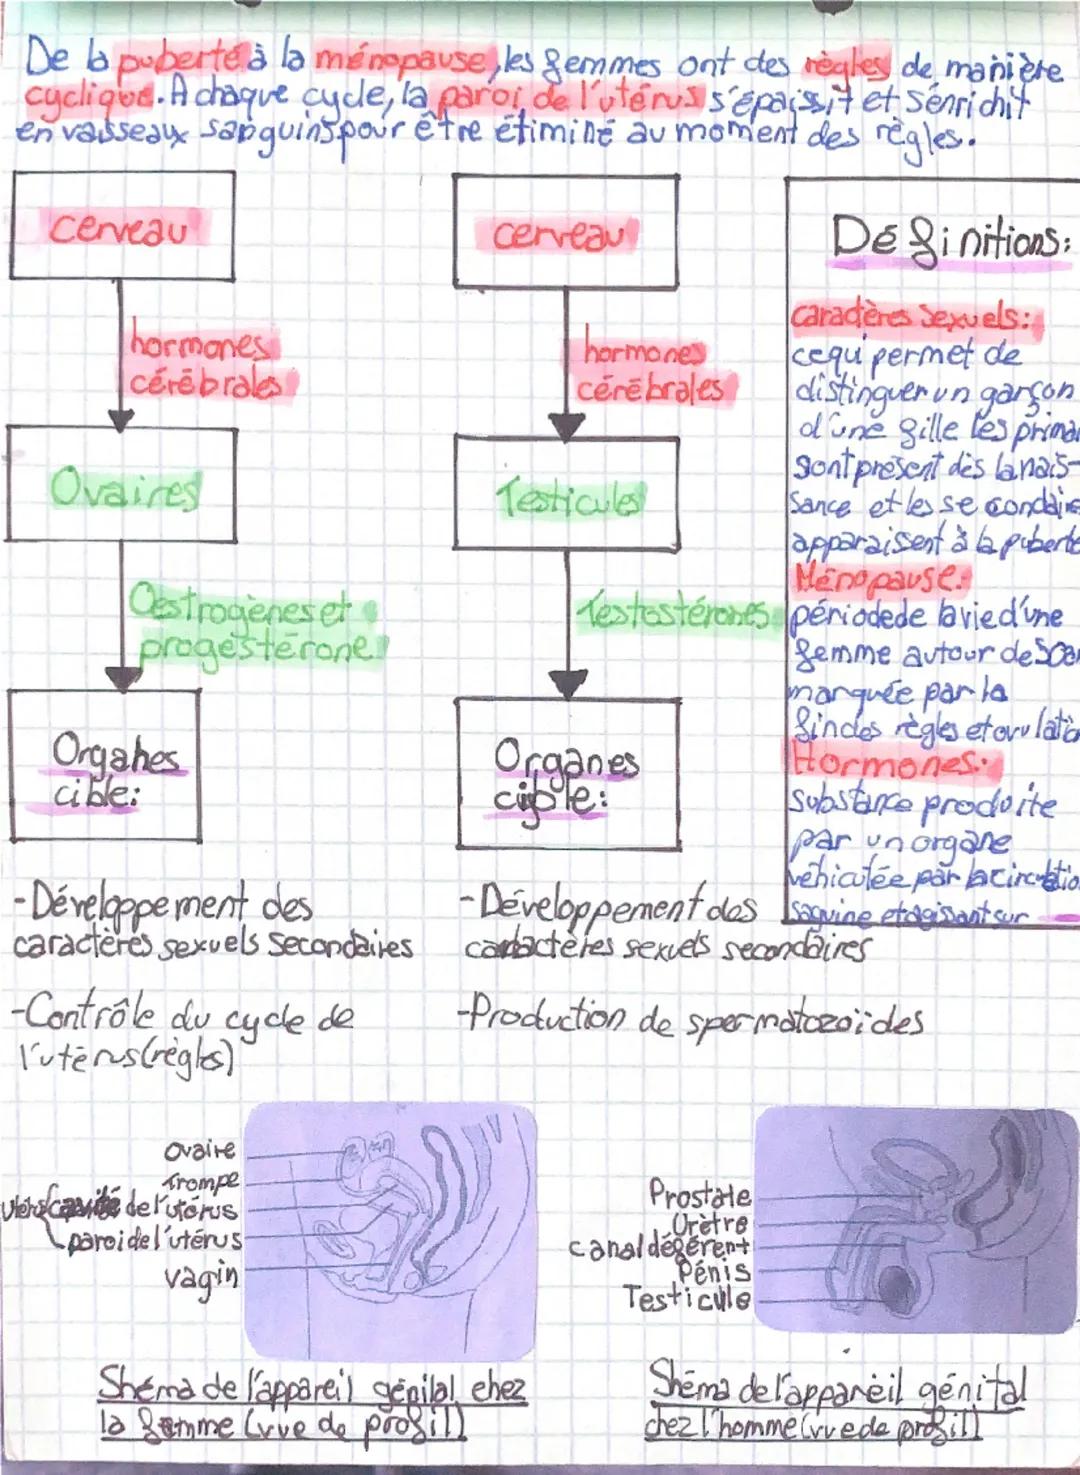 De la puberté à la ménopause, les femmes ont des règles de manière
cyclique. A chaque cycle, la paroi de l'utérus s'épaissit et s'enrichit
en vaisseaux sanguins pour être éliminé au moment des règles.
cerveau
hormones
cérébrales
Ovaires
Oestrogènes et
progestérone
Organes
cible:
-Développement des
caractères sexuels secondaires
-Contrôle du cycle de
l'utérus (règles)
cerveau
hormones
cérébrales
Testicules
Testostérones
Organes
cible:
-Développement des
caractères sexuels secondaires
-Production de spermatozoïdes
Définitions:
caractères sexuels:
ce qui permet de
distinguer un garçon
d'une fille les primai
sont présent dès la nais-
sance et les secondaire
apparaisent à la puberté
Ménopause:
période de la vie d'une
femme autour de 50an
marquée par la
fin des règles et ovulatio
Hormones:
substance produite
par un organe
véhiculée par la circulatio
saguine et agisant sur
ovaire
Trompe
utérus cavité de l'utérus
paroi de l'utérus
vagin
Shéma de l'appareil génital chez
la femme (vue de profil)
Prostate
Urètre
canal déférent
Pénis
Testicule
Shéma de l'appareil génital
chez l'homme (vue de profil)